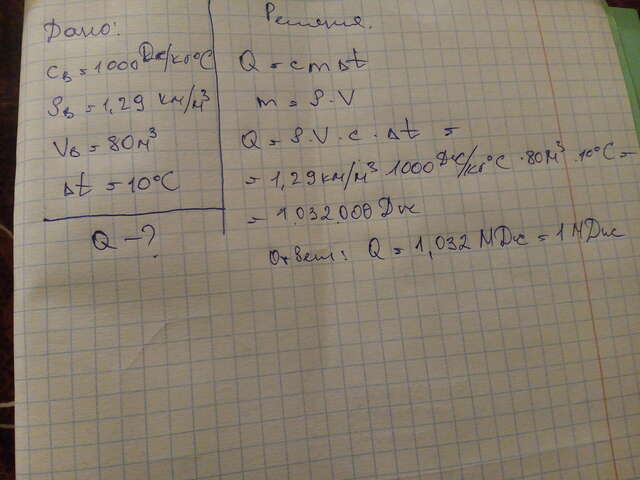 Дано:
Cв = 1000 Дж/кг°C
ρв = 1,29 км/м³
Vв = 80 м³
Δt = 10°C
Q - ?
Решение.
Q = cmΔt
m = ρ·V
Q = ρ·V·c·Δt =
= 1,29 км/м³ · 1000 Дж/кг°C · 80 м³ · 10°C =
= 1.032.000 Дж
Ответ: Q = 1,032 МДж = 1 МДж